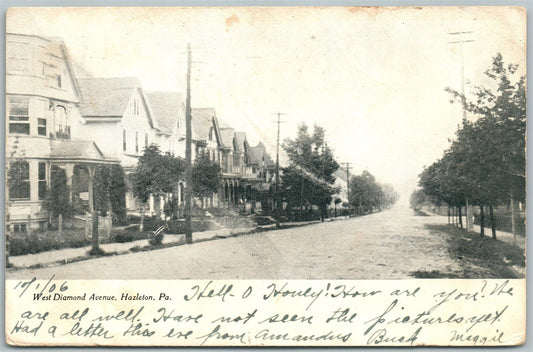 West Diamond Avenue, Hazleton, Pa.
10/1/06 Hell-O Honey! How are you? We
are all well. Have not seen the pictures yet.
Had a letter this eve from Amandus Buck Maggie